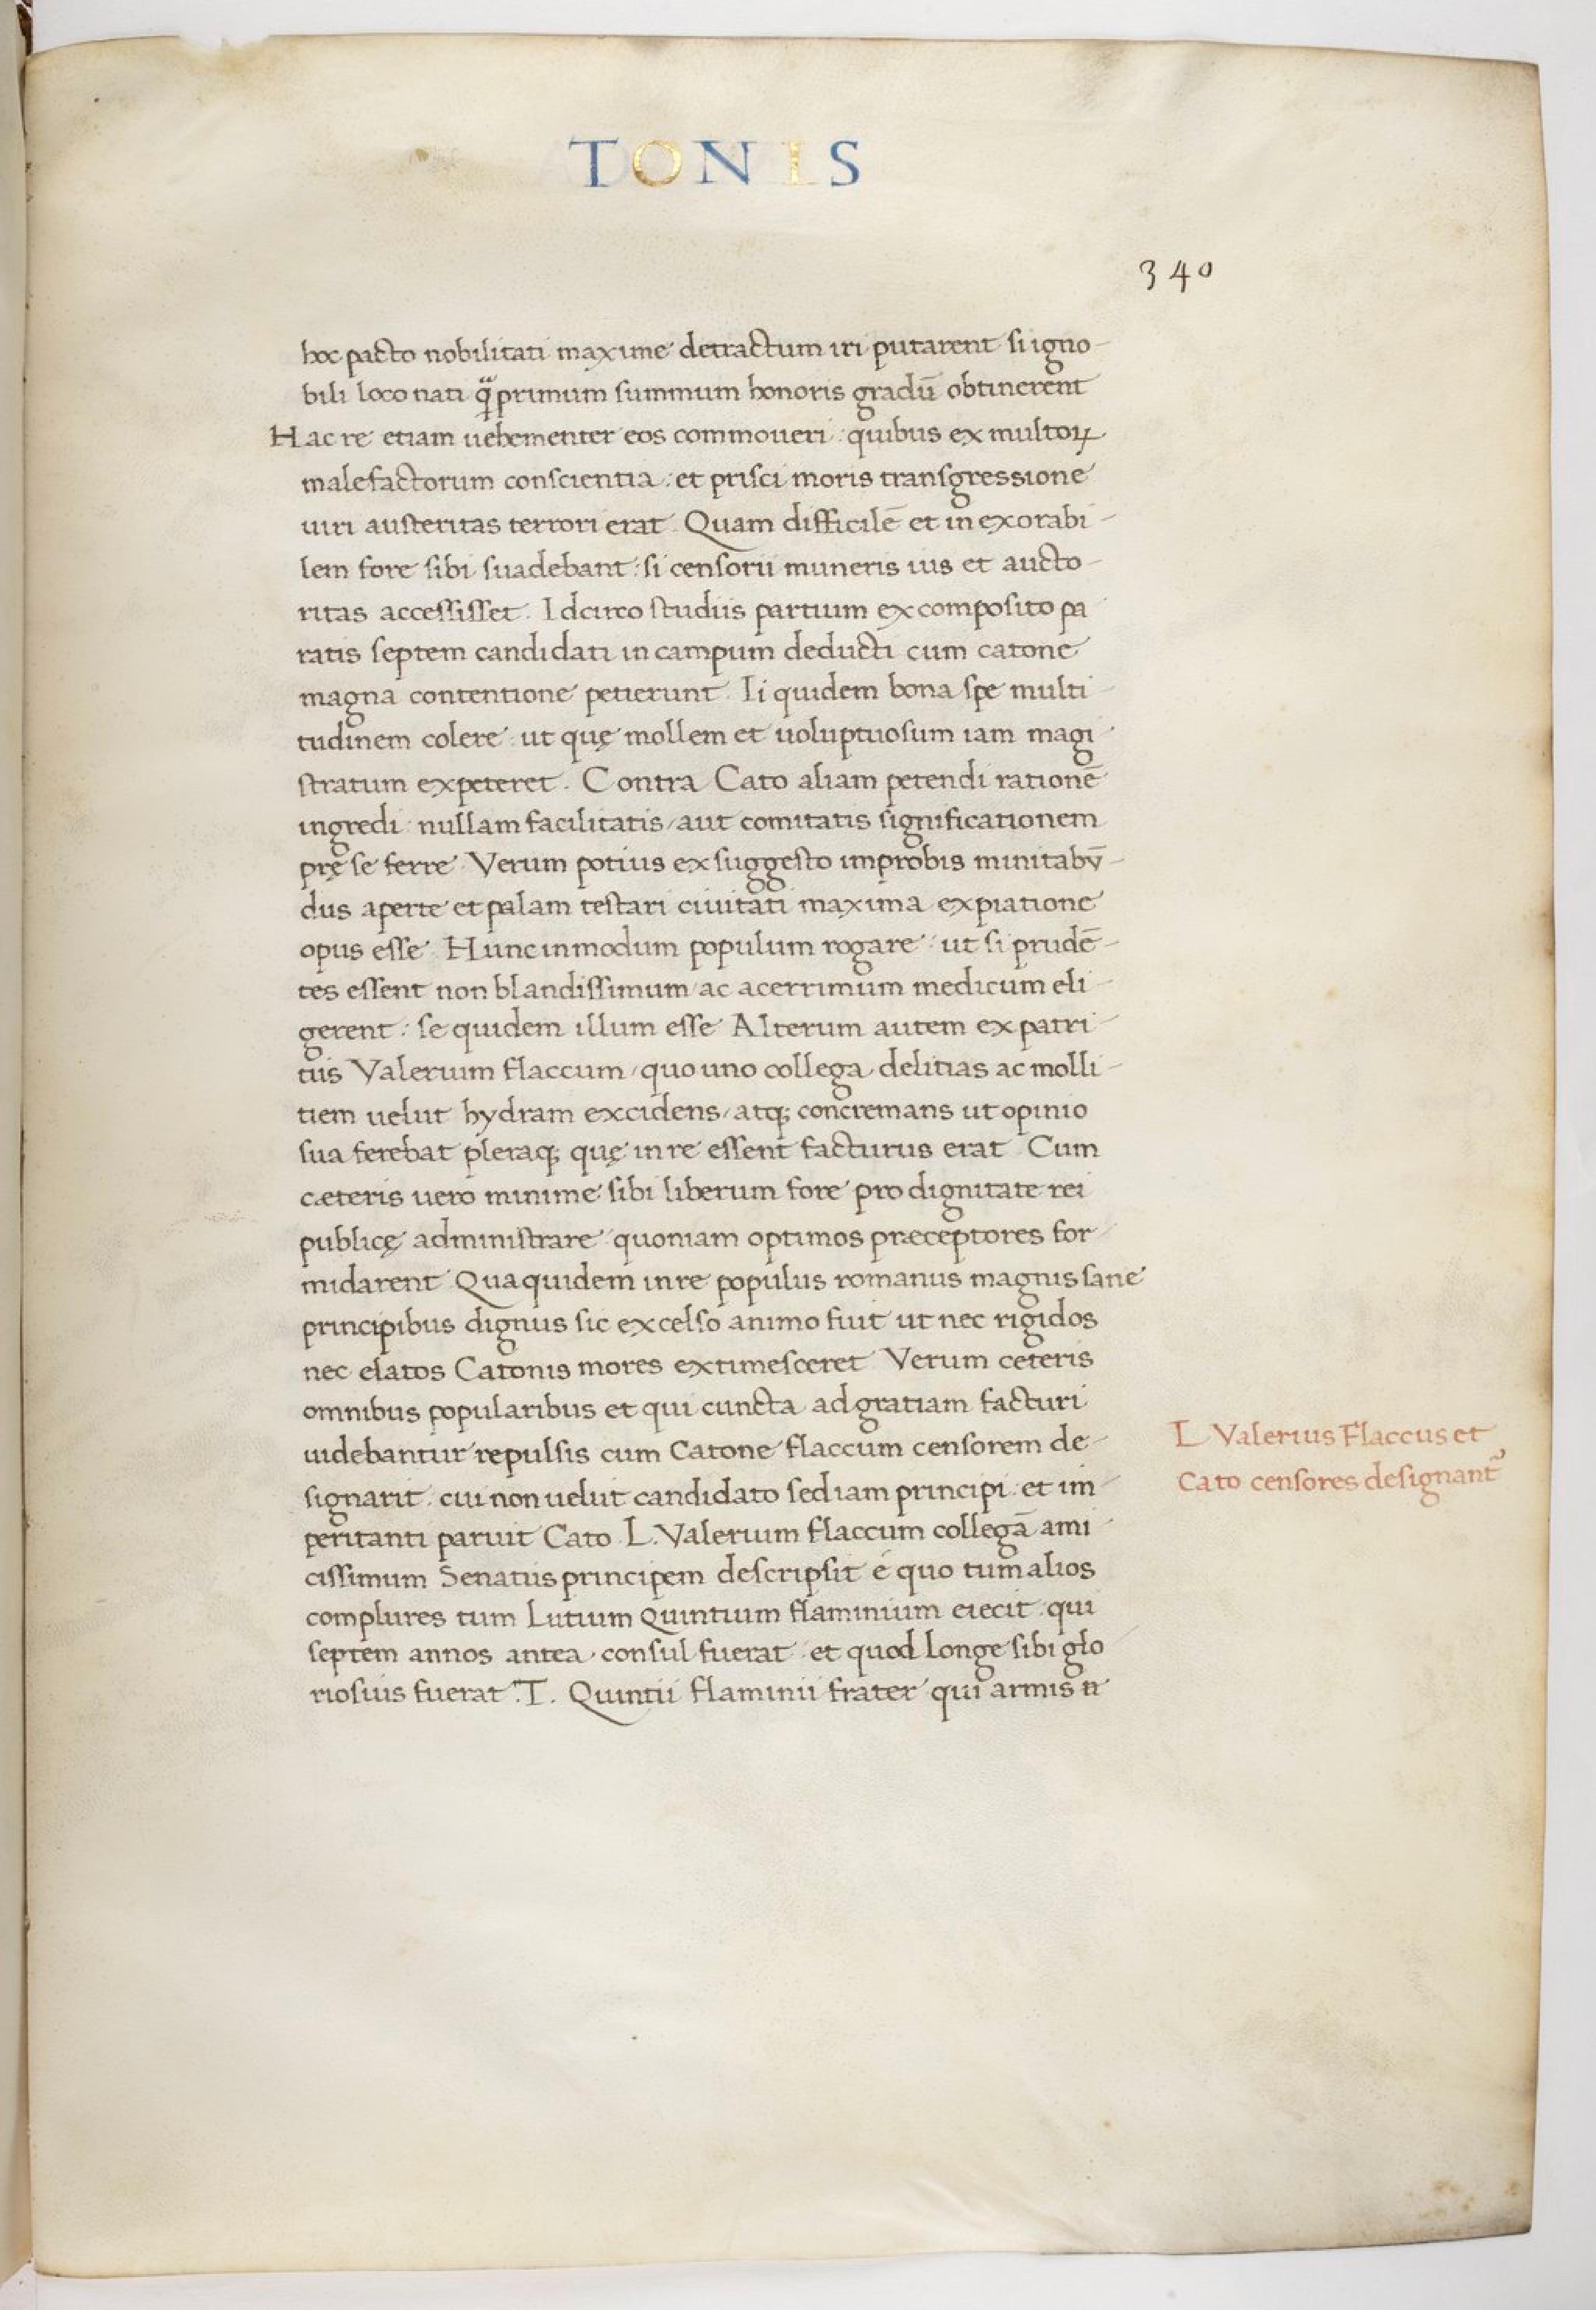 TONIS
340
hoc pacto nobilitati maxime detractum iri putarent si igno-
bili loco nati q̃primum summum honoris gradū obtinerent
Hac re etiam uehementer eos commoueri : quibus ex multoꝝ
malefactorum conscientia : et prisci moris transgressione
uiri austeritas terrori erat. Quam difficilē et in exorabi-
lem fore sibi suadebant : si censorii muneris ius et aucto-
ritas accessisset. Idcirco studiis partium ex composito pa
ratis septem candidati in campum deducti cum catone
magna contentione petierunt. Ii quidem bona spe multi-
tudinem colere : ut quę mollem et uoluptuosum iam magi
stratum expeteret. Contra Cato aliam petendi rationē
ingredi : nullam facilitatis / aut comitatis significationem
pręse ferre. Verum potius ex suggesto improbis minitabū-
dus aperte et palam testari ciuitati maxima expiatione
opus esse. Hunc inmodum populum rogare : ut si prudē-
tes essent non blandissimum / ac acerrimum medicum eli-
gerent : se quidem illum esse Alterum autem ex patri-
tiis Valerium flaccum / quo uno collega delitias ac molli-
tiem uelut hydram excidens / atq; concremans ut opinio
sua ferebat pleraq; quę in re essent facturus erat. Cum
cæteris uero minime sibi liberum fore pro dignitate rei
publicę administrare quoniam optimos præceptores for-
midarent Qua quidem in re populus romanus magnis sane
principibus dignus sic excelso animo fuit ut nec rigidos
nec elatos Catonis mores extimesceret Verum ceteris
omnibus popularibus et qui cuncta ad gratiam facturi
uidebantur repulsis cum Catone flaccum censorem de-
signarit. cui non uelut candidato sed iam principi : et im-
peritanti paruit Cato L. Valerium flaccum collegā ami-
cissimum Senatus principem descripsit é quo tum alios
complures tum Lutium Quintium flaminium eiecit : qui
septem annos antea consul fuerat : et quod longe sibi glo
riosius fuerat T. Quintii flaminii frater qui armis
L Valerius Flaccus et
Cato censores designantᷣ